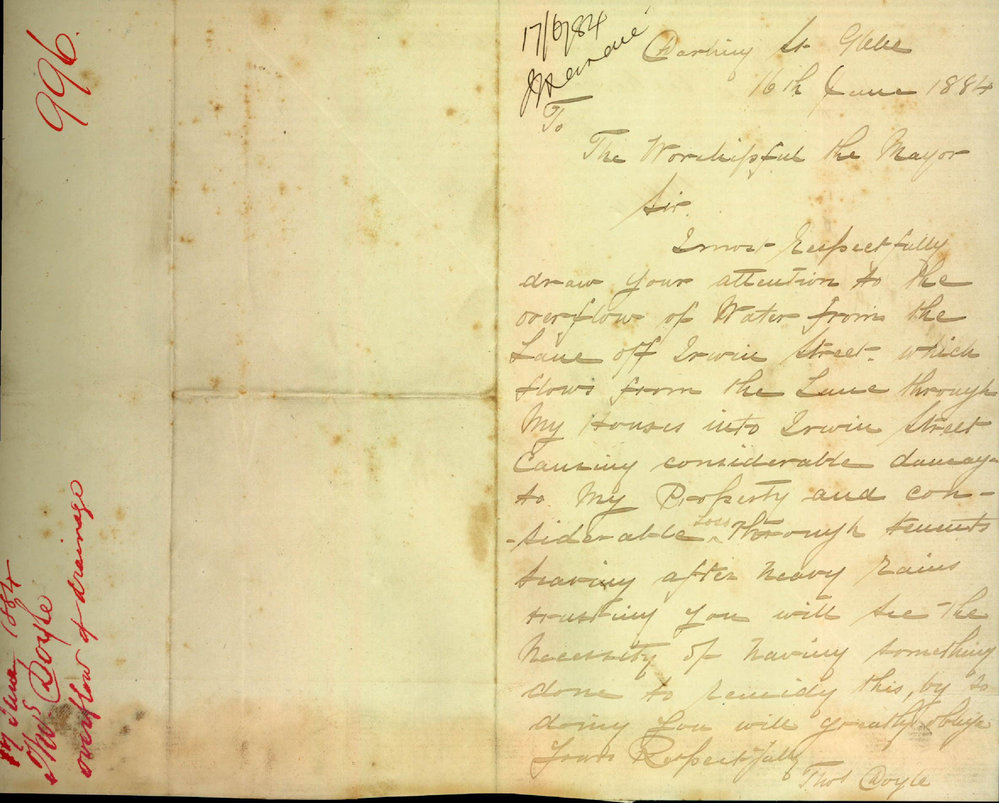 996.
17 June 1884
Thos Doyle
overflow of drainage
17/6/84
Darling St Glebe
16th June 1884
To
The Worshipful the Mayor
Sir
I most Respectfully
draw your attention to the
overflow of Water from the
Lane off Irwin Street. which
flows from the Lane through
My Houses into Irwin Street
Causing considerable damag-
to My Property and con-
-siderable loss through tenents
leaving after heavy rains
trusting you will see the
Necessity of having something
done to remidy this, by so
doing you will greatly oblige
Yours Respectfully
Thos Doyle